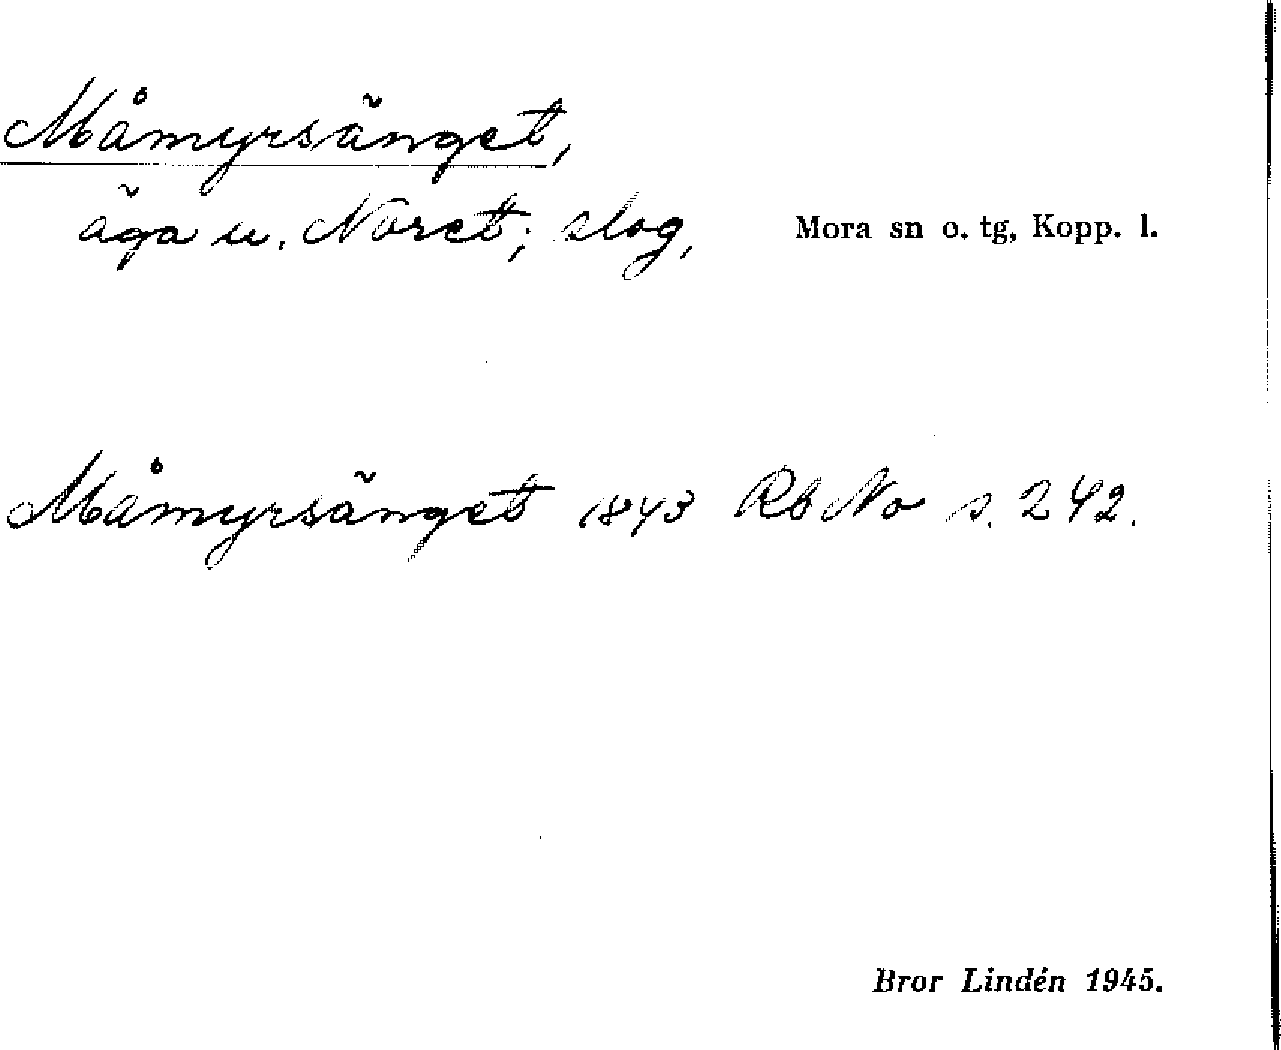 Måmyrsänget,
äga u. Noret; slog, Mora sn o. tg, Kopp. l.
Måmyrsänget 1843 Rb No s. 242.
Bror Lindén 1945.